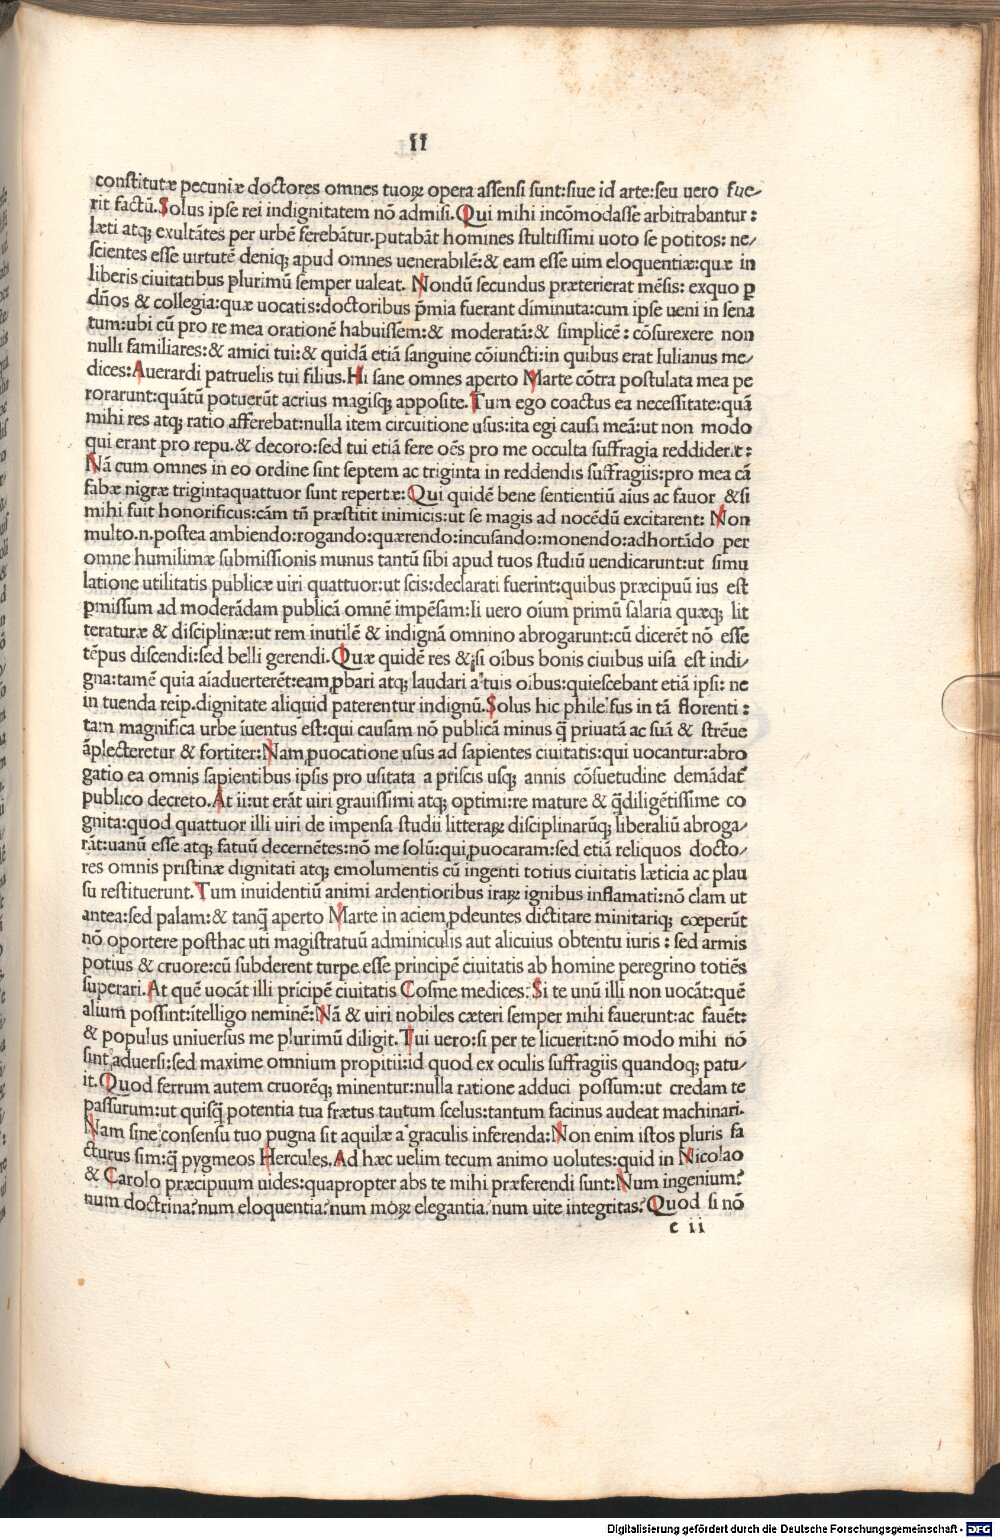 II
constitutæ pecuniæ doctores omnes tuoꝝ opera assensi sunt:siue id arte:seu uero fue/
rit factū.Solus ipse rei indignitatem nō admisi.Qui mihi incōmodasse arbitrabantur:
læti atq; exultātes per urbē ferebātur.putabāt homines stultissimi uoto se potitos: ne/
scientes esse uirtutē deniq; apud omnes uenerabilē:& eam esse uim eloquentiæ:quæ in
liberis ciuitatibus plurimū semper ualeat. Nondū secundus præterierat mēsis: exquo ꝑ
dn̄os & collegia:quæ uocatis:doctoribus p̄mia fuerant diminuta:cum ipse ueni in sena
tum:ubi cū pro re mea orationē habuissem:& moderatā:& simplicē: cōsurexere non
nulli familiares:& amici tui:& quidā etiā sanguine cōiuncti:in quibus erat Iulianus me/
dices:Auerardi patruelis tui filius.Hi sane omnes aperto Marte cōtra postulata mea pe
rorarunt:quātū potuerūt acrius magisq; apposite.Tum ego coactus ea necessitate:quā
mihi res atq; ratio afferebat:nulla item circuitione usus:ita egi causā meā:ut non modo
qui erant pro repu.& decoro:sed tui etiā fere oēs pro me occulta suffragia reddiderūt:
Nā cum omnes in eo ordine sint septem ac triginta in reddendis suffragiis:pro mea cā
fabæ nigræ trigintaquattuor sunt repertæ:Qui quidē bene sentientiū aīus ac fauor &si
mihi fuit honorificus:cām tn̄ præstitit inimicis:ut se magis ad nocēdū excitarent: Non
multo.n.postea ambiendo:rogando:quærendo:incusando:monendo:adhortādo per
omne humilimæ submissionis munus tantū sibi apud tuos studiū uendicarunt:ut simu
latione utilitatis publicæ uiri quattuor:ut scis:declarati fuerint:quibus præcipuū ius est
ꝑmissum ad moderādam publicā omnē impēsam:Ii uero oīum primū salaria quæq; lit
teraturæ & disciplinæ:ut rem inutilē & indignā omnino abrogarunt:cū dicerēt nō esse
tēpus discendi:sed belli gerendi.Quæ quidē res &si oībus bonis ciuibus uisa est indi/
gna:tamē quia aīaduerterēt:eam ꝓbari atq; laudari a tuis oībus:quiescebant etiā ipsi: ne
in tuenda reip.dignitate aliquid paterentur indignū.Solus hic philelfus in tā florenti:
tam magnifica urbe īuentus est:qui causam nō publicā minus q̄ priuatā ac suā & strēue
āplecteretur & fortiter:Nam ꝓuocatione usus ad sapientes ciuitatis:qui uocantur:abro
gatio ea omnis sapientibus ipsis pro usitata a priscis usq; annis cōsuetudine demādat̄
publico decreto.At ii:ut erāt uiri grauissimi atq; optimi:re mature & q̄diligētissime co
gnita:quod quattuor illi uiri de impensa studii litteraꝝ disciplinarūq; liberaliū abroga/
rāt:uanū esse atq; fatuū decernētes:nō me solū:qui ꝓuocaram:sed etiā reliquos docto/
res omnis pristinæ dignitati atq; emolumentis cū ingenti totius ciuitatis læticia ac plau
su restituerunt.Tum inuidentiū animi ardentioribus iraꝝ ignibus inflamati:nō clam ut
antea:sed palam:& tanq̄ aperto Marte in aciem ꝓdeuntes dictitare minitariq; cœperūt
nō oportere posthac uti magistratuū adminiculis aut alicuius obtentu iuris: sed armis
potius & cruore:cū subderent turpe esse principē ciuitatis ab homine peregrino totiēs
superari.At quē uocāt illi pricipē ciuitatis Cosme medices:Si te unū illi non uocāt:quē
alium possint:ītelligo neminē:Nā & uiri nobiles cæteri semper mihi fauerunt:ac fauēt:
& populus uniuersus me plurimū diligit.Tui uero:si per te licuerit:nō modo mihi nō
sint aduersi:sed maxime omnium propitii:id quod ex oculis suffragiis quandoq; patu/
it.Quod ferrum autem cruorēq; minentur:nulla ratione adduci possum:ut credam te
passurum:ut quisq̄ potentia tua frætus tautum scelus:tantum facinus audeat machinari.
Nam sine consensu tuo pugna sit aquilæ a graculis inferenda:Non enim istos pluris fa
cturus sim:q̄ pygmeos Hercules.Ad hæc uelim tecum animo uolutes:quid in Nicolao
& Carolo præcipuum uides:quapropter abs te mihi præferendi sunt:Num ingenium?
num doctrina?num eloquentia?num moꝝ elegantia?num uite integritas?Quod si nō
c ii
Digitalisierung gefördert durch die Deutsche Forschungsgemeinschaft - DFG